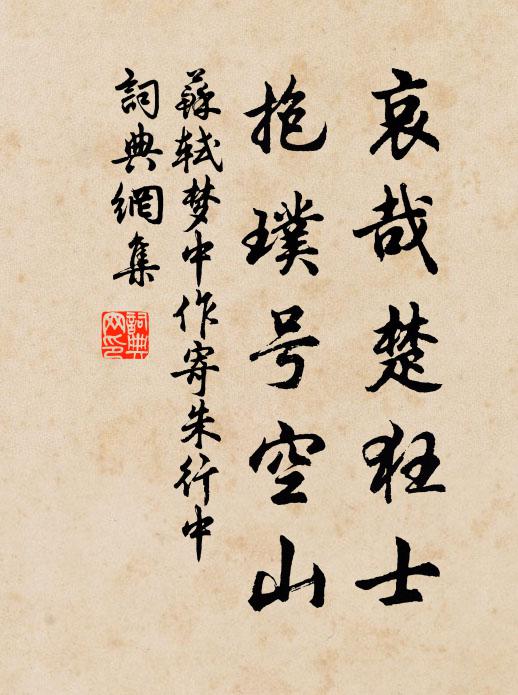 哀哉楚狂士
抱璞号空山
蘇軾梦中作寄朱行中
詞典網集
詞典網印